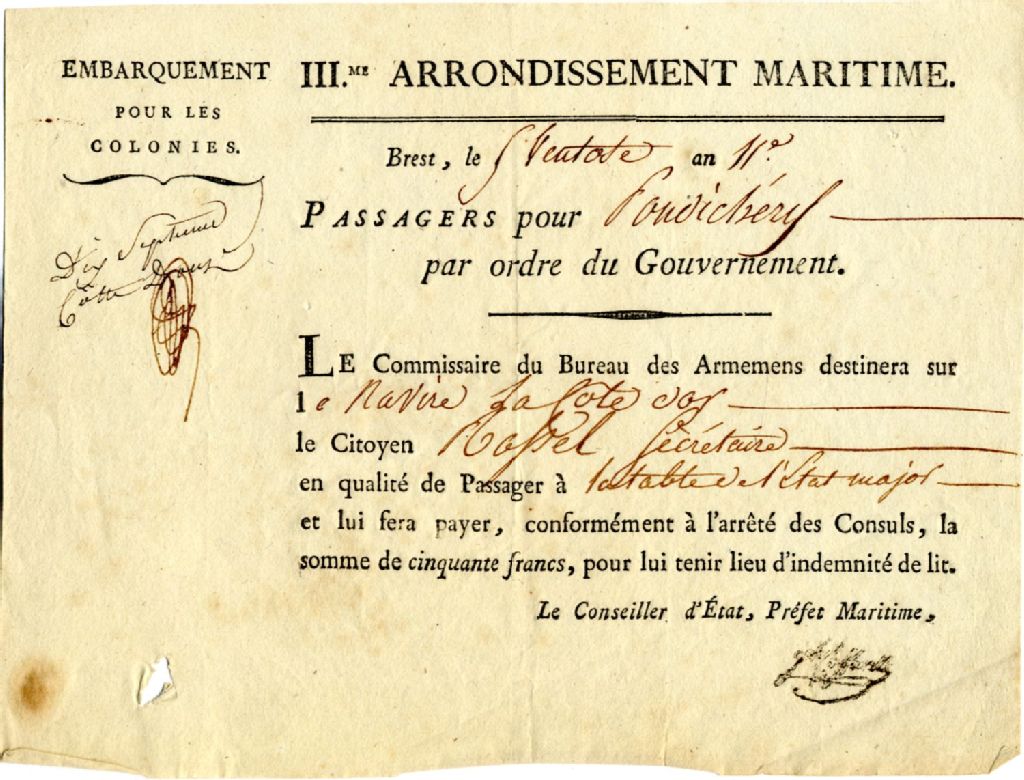 EMBARQUEMENT
POUR LES
COLONIES.
Dix Septieme
Cotte
III.ME ARRONDISSEMENT MARITIME.
Brest, le 5 Ventose an 11e
PASSAGERS pour Pondichéry
par ordre du Gouvernement.
LE Commissaire du Bureau des Armemens destinera sur
le Navire La Cote d'or
le Citoyen Secrétaire
en qualité de Passager à la table de l'état major
et lui fera payer, conformément à l'arrêté des Consuls, la
somme de cinquante francs, pour lui tenir lieu d'indemnité de lit.
Le Conseiller d'État, Préfet Maritime,